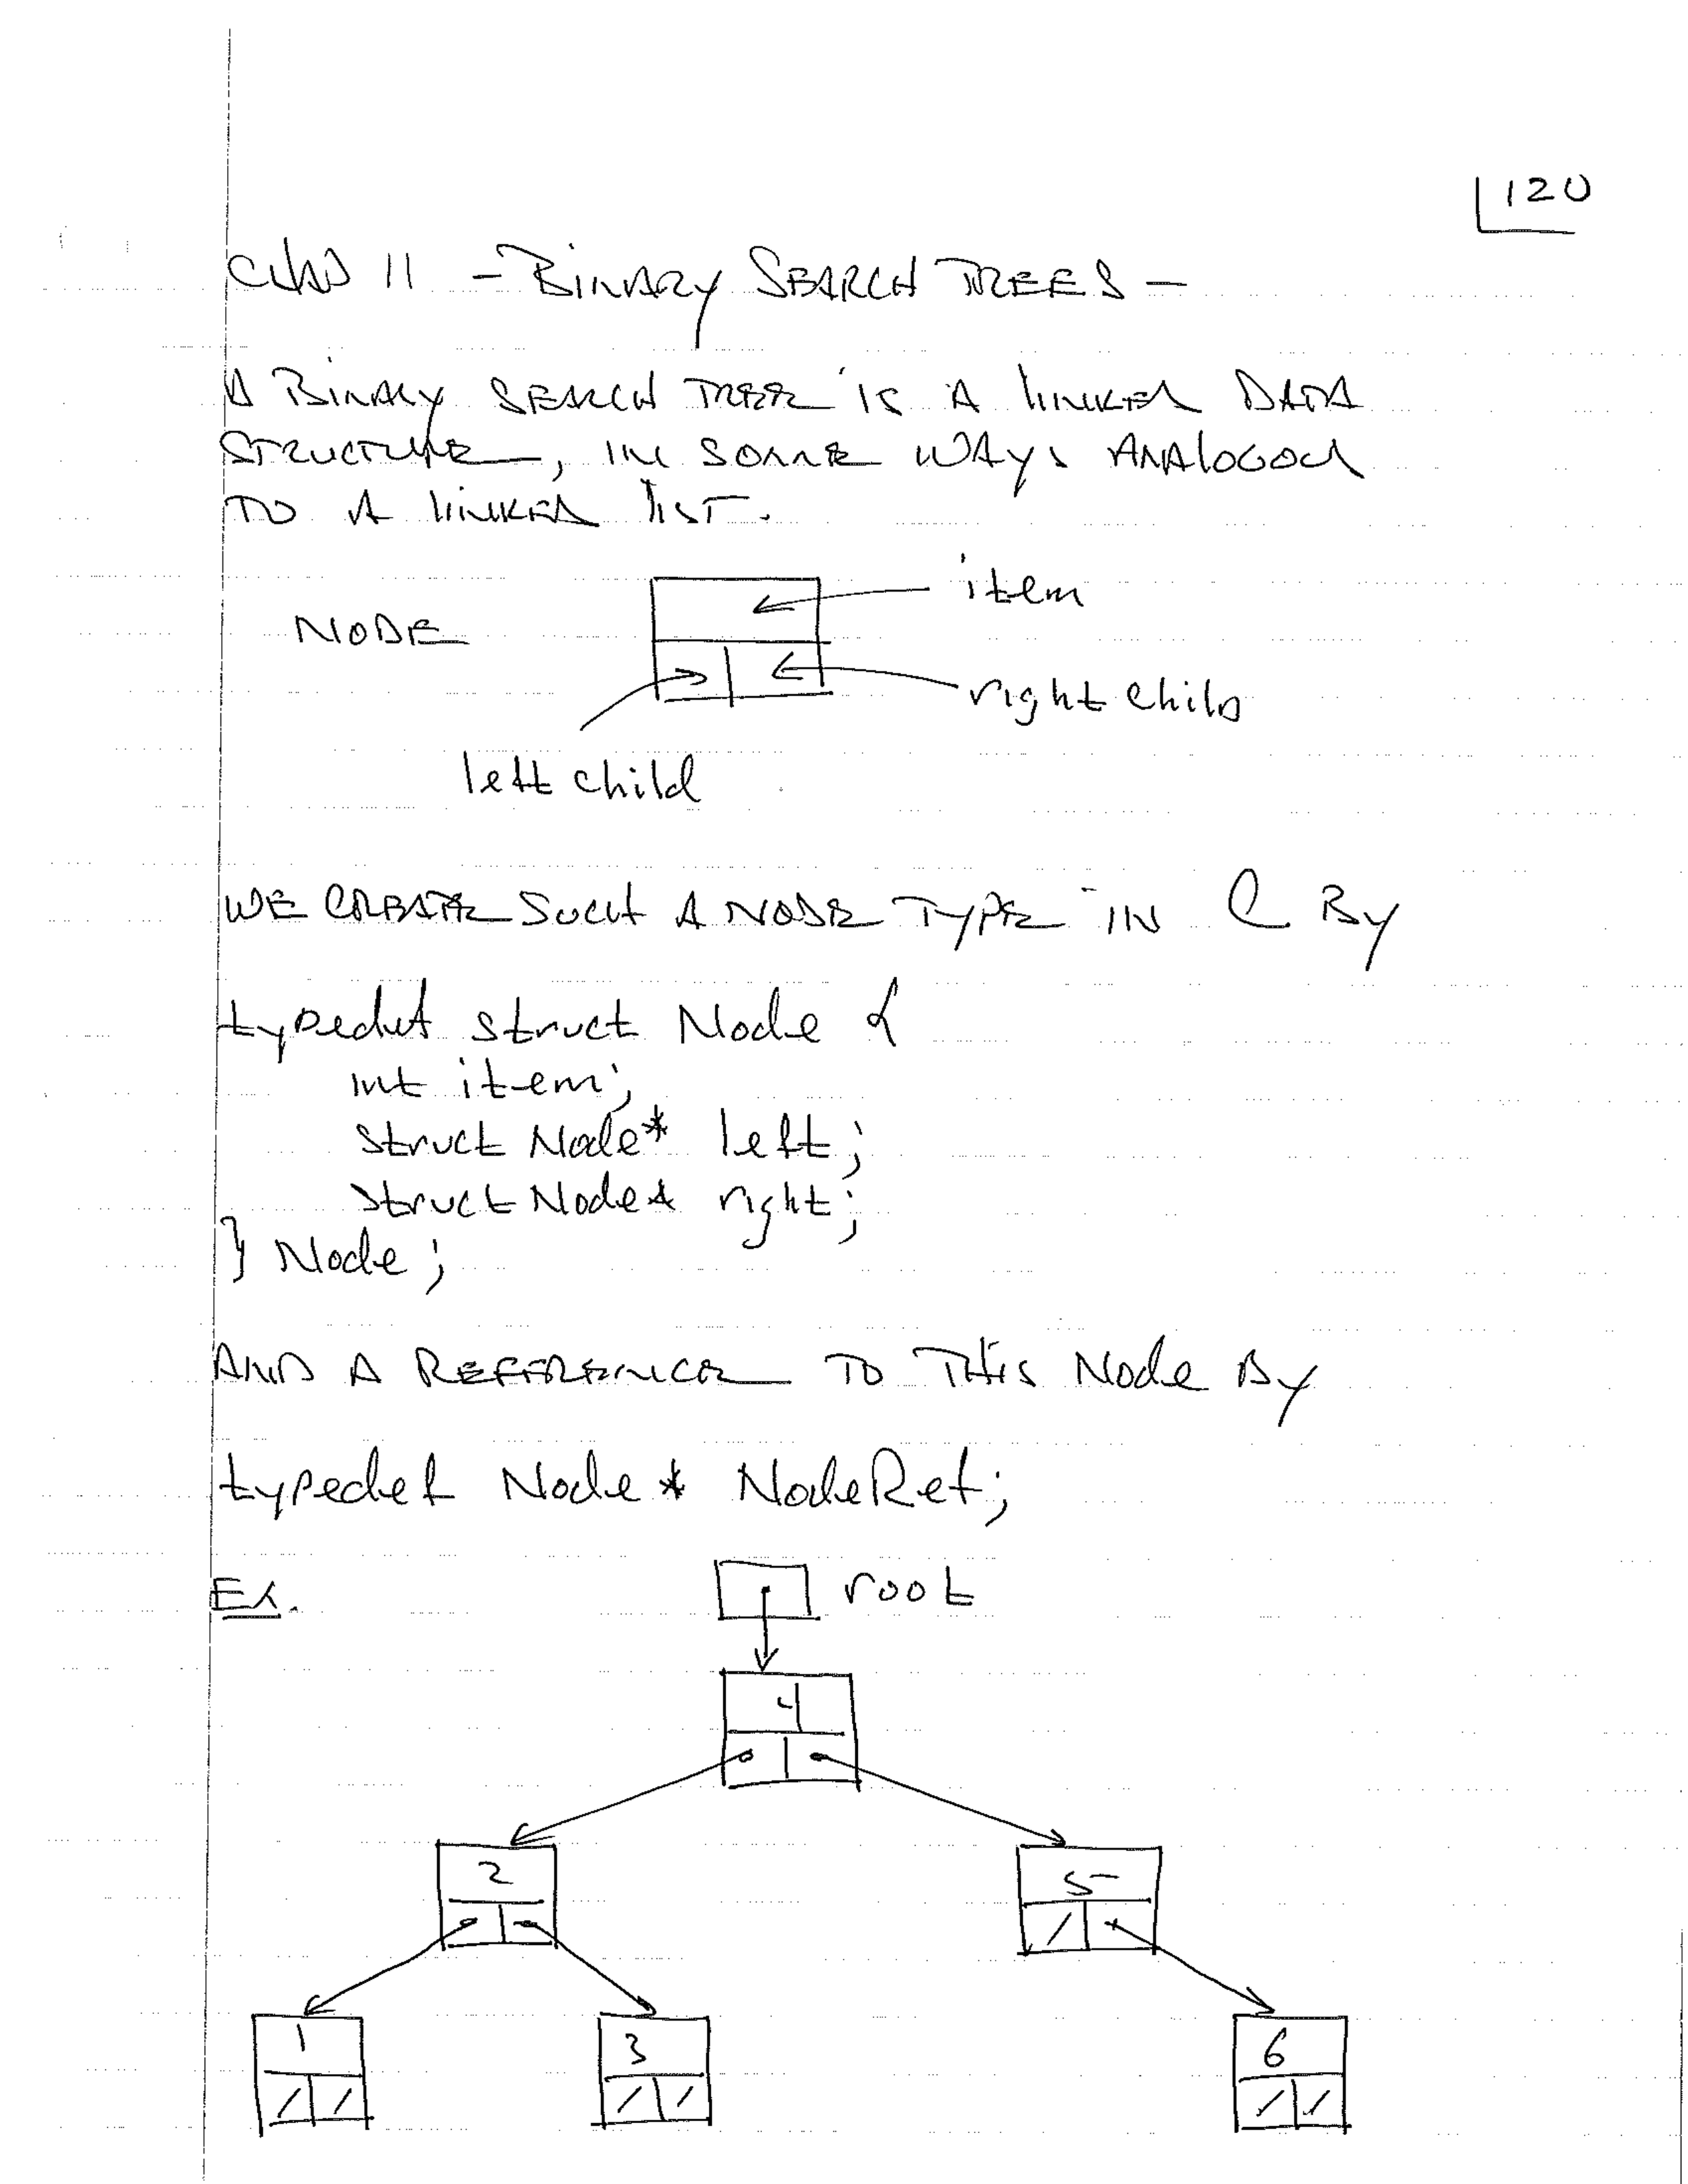 120
CLASS 11 - BINARY SEARCH TREES -
A BINARY SEARCH TREE IS A LINKED DATA
STRUCTURE, IN SOME WAYS ANALOGOUS
TO A LINKED LIST.
item
NODE
right child
left child
WE CREATE SUCH A NODE TYPE IN C BY
typedef struct Node {
int item;
struct Node* left;
struct Node* right;
} Node;
AND A REFERENCE TO THIS Node BY
typedef Node* NodeRef;
Ex. root
4
2 5
1 3 6